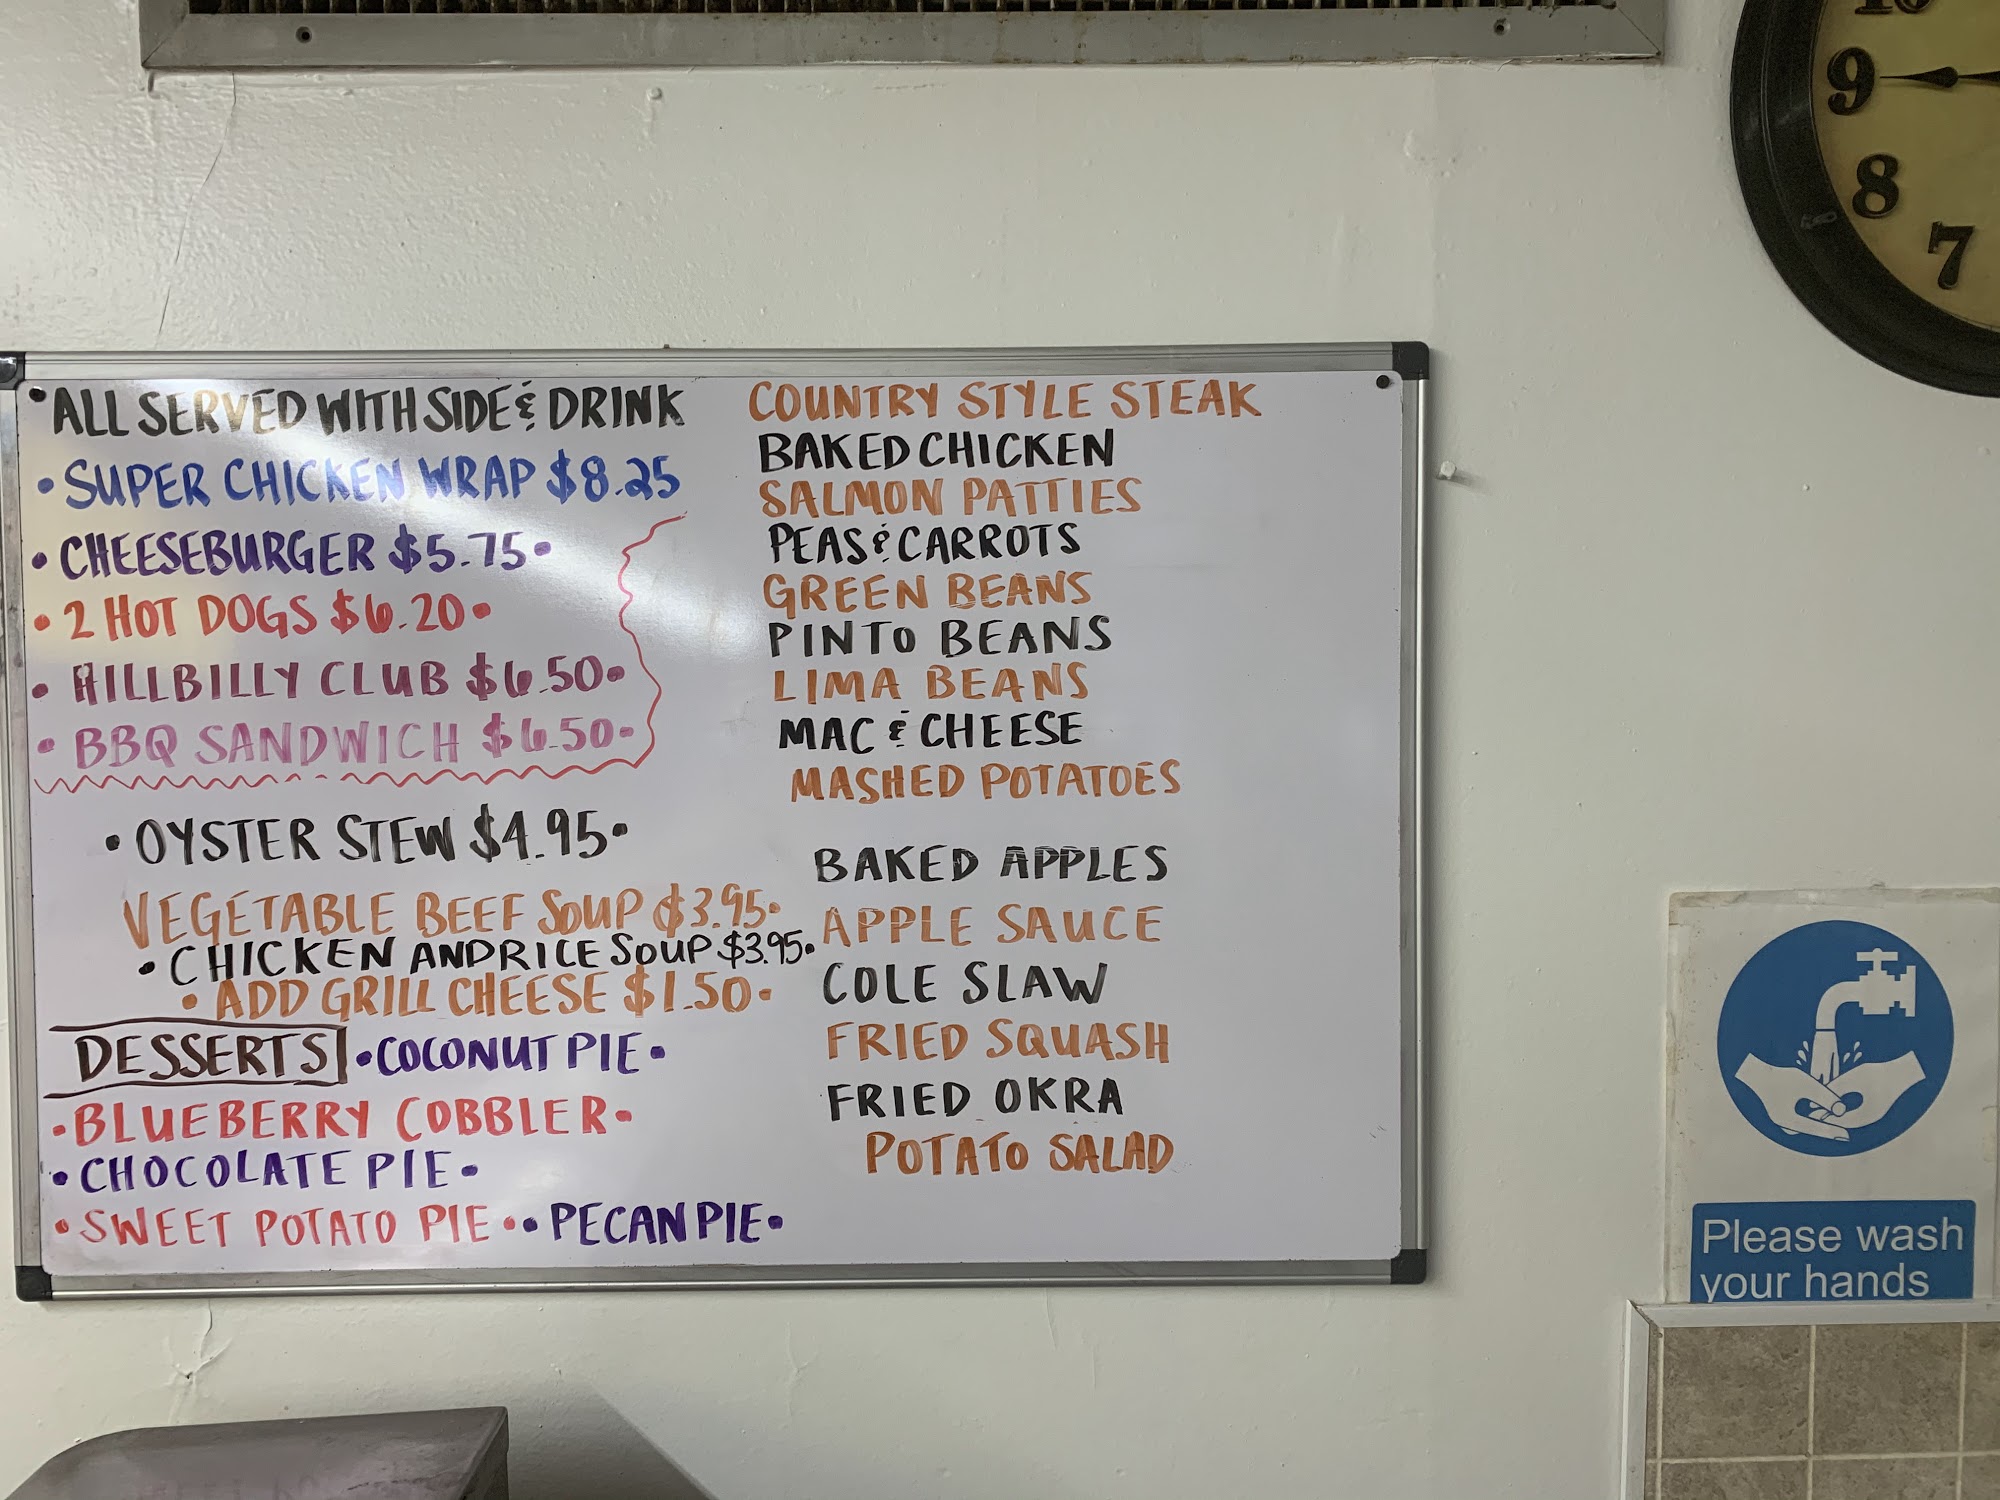 ALL SERVED WITH SIDE & DRINK
• SUPER CHICKEN WRAP $8.25
• CHEESEBURGER $5.75 •
• 2 HOT DOGS $6.20 •
• HILLBILLY CLUB $6.50 •
• BBQ SANDWICH $6.50 •
• OYSTER STEW $4.95 •
VEGETABLE BEEF SOUP $3.95 •
• CHICKEN AND RICE SOUP $3.95 •
• ADD GRILL CHEESE $1.50 •
DESSERTS • COCONUT PIE •
• BLUEBERRY COBBLER •
• CHOCOLATE PIE •
• SWEET POTATO PIE • • PECAN PIE •
COUNTRY STYLE STEAK
BAKED CHICKEN
SALMON PATTIES
PEAS & CARROTS
GREEN BEANS
PINTO BEANS
LIMA BEANS
MAC & CHEESE
MASHED POTATOES
BAKED APPLES
APPLE SAUCE
COLE SLAW
FRIED SQUASH
FRIED OKRA
POTATO SALAD
10
9
8
7
Please wash
your hands